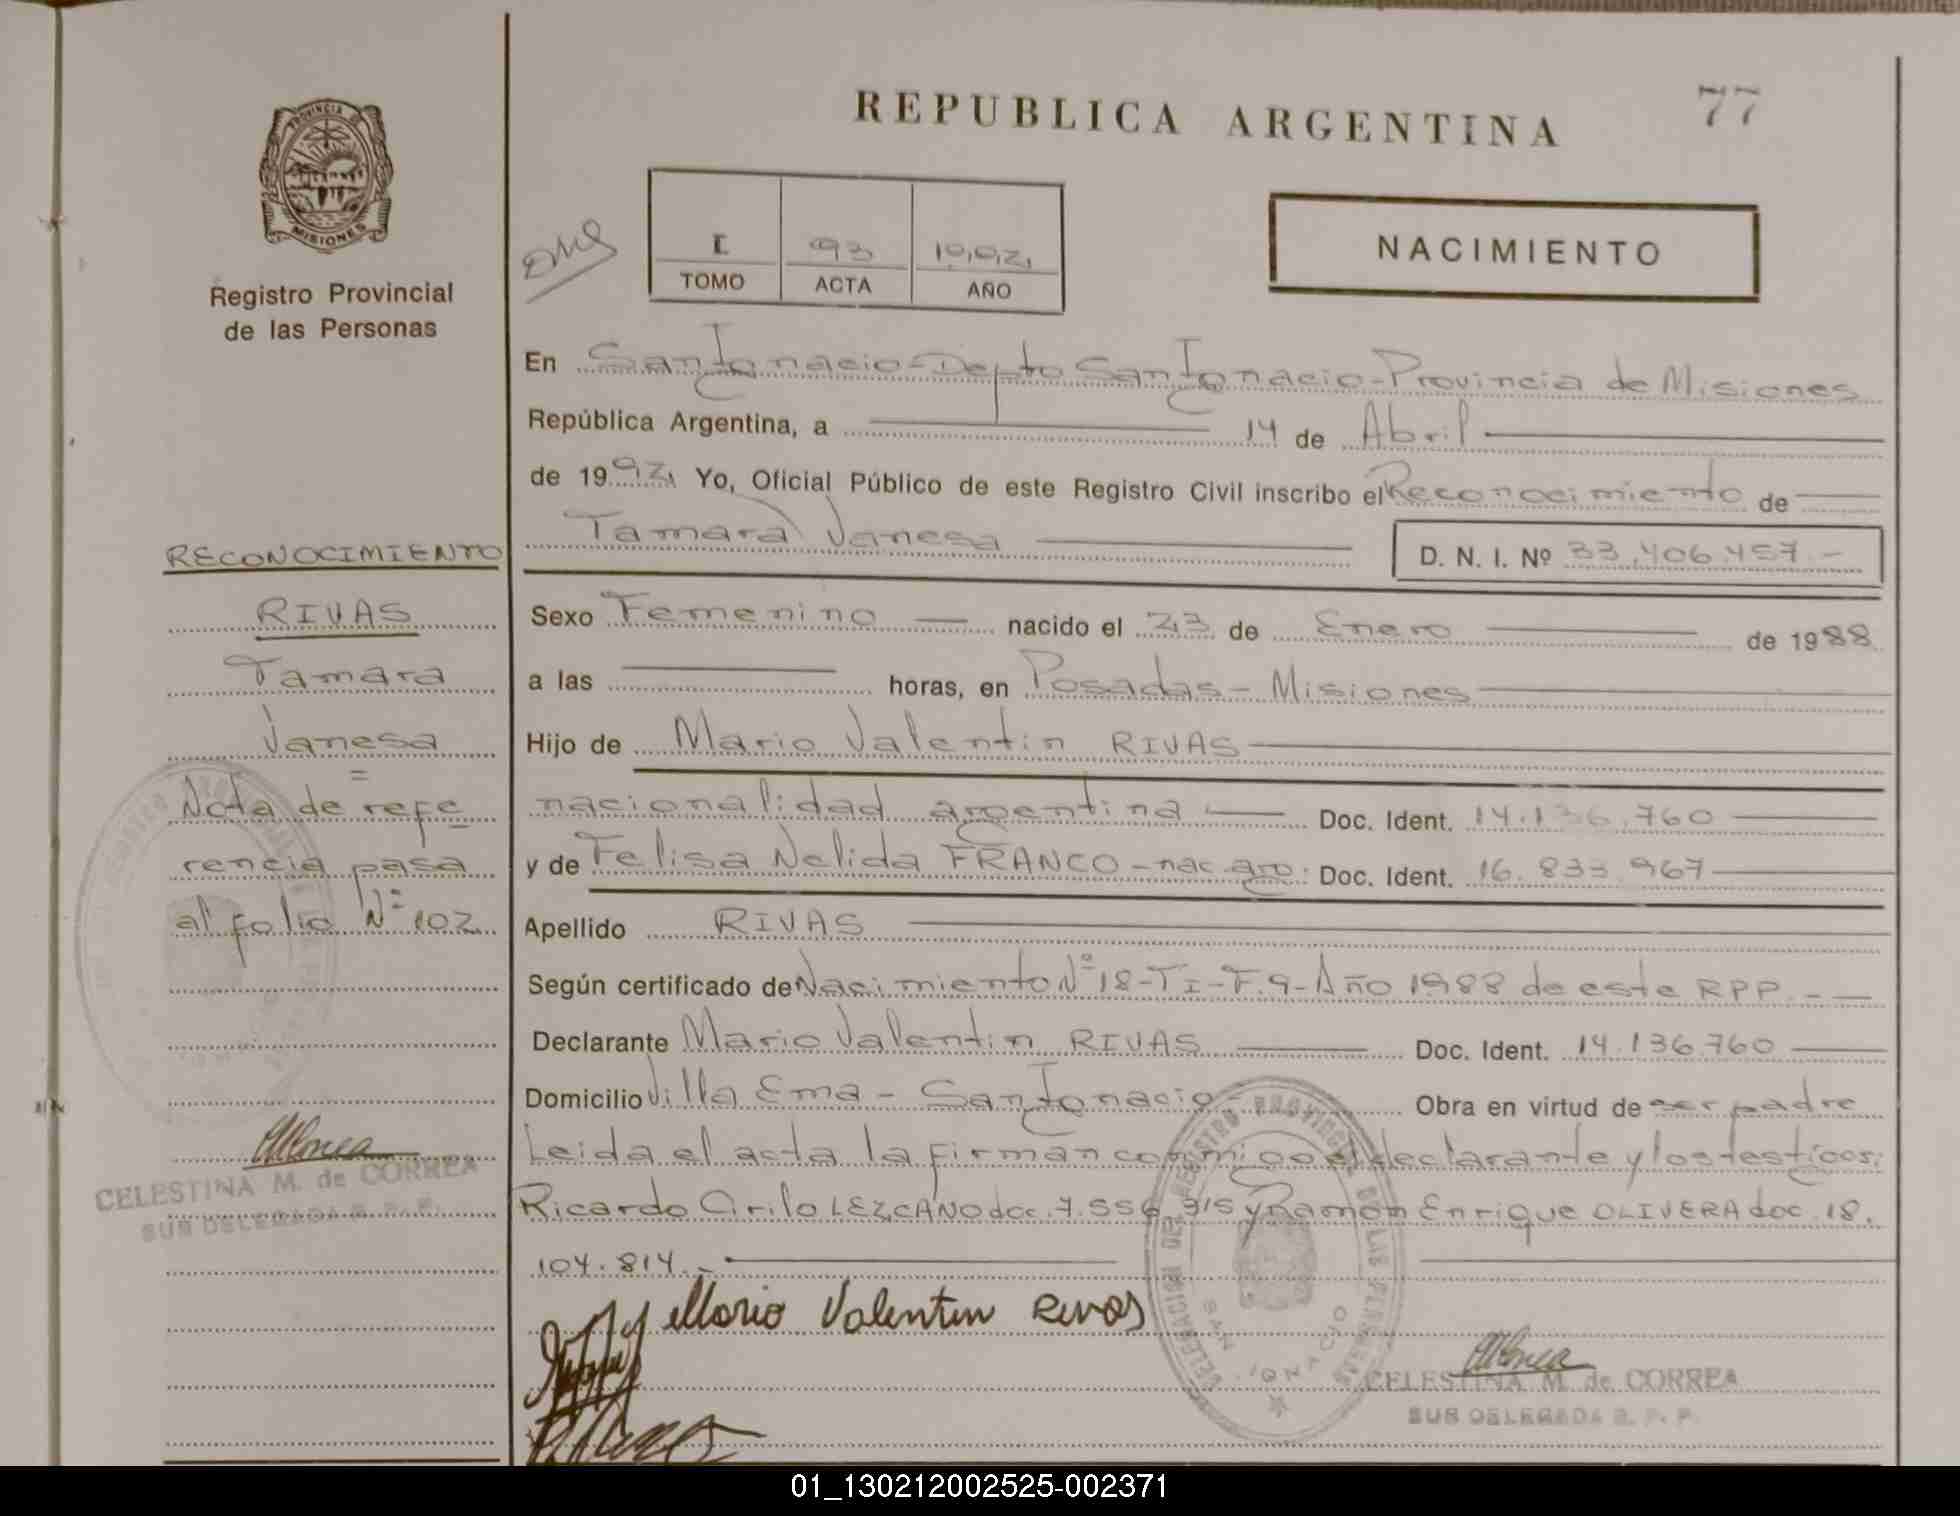 REPUBLICA ARGENTINA
77
PROVINCIA DE
MISIONES
Registro Provincial
de las Personas
I
93
TOMO
ACTA
AÑO
NACIMIENTO
En San Ignacio - Depto San Ignacio - Provincia de Misiones
República Argentina, a 14 de Abril
de 1992 Yo, Oficial Público de este Registro Civil inscribo el Reconocimiento de
Tamara Vanesa
D. N. I. Nº 33.406.457.-
Sexo Femenino nacido el 23 de Enero de 1988
a las horas, en Posadas - Misiones
Hijo de Mario Valentin RIVAS
nacionalidad argentina Doc. Ident. 14.136.760
y de Felisa Nelida FRANCO - nac. arg. Doc. Ident. 16.833.967
Apellido RIVAS
Según certificado de Nacimiento Nº 18-TI-F.9-Año 1988 de este RPP.-
Declarante Mario Valentin RIVAS Doc. Ident. 14.136.760
Domicilio Villa Ema - San Ignacio Obra en virtud de ser padre
Leida el acta la firman conmigo el declarante y los testigos:
Ricardo Cirilo LEZCANO doc. 7.556.315 y Ramón Enrique OLIVERA doc. 18.
104.814.-
Mario Valentin Rivas
CELESTINA M. de CORREA
SUB DELEGADA R. P. P.
DELEGACION DEL REGISTRO PROVINCIAL DE LAS PERSONAS
SAN IGNACIO
RECONOCIMIENTO
RIVAS
Tamara
Vanesa
=
Nota de refe
rencia pasa
al folio Nº 102
CELESTINA M. de CORREA
SUB DELEGADA R. P. P.
01_130212002525-002371